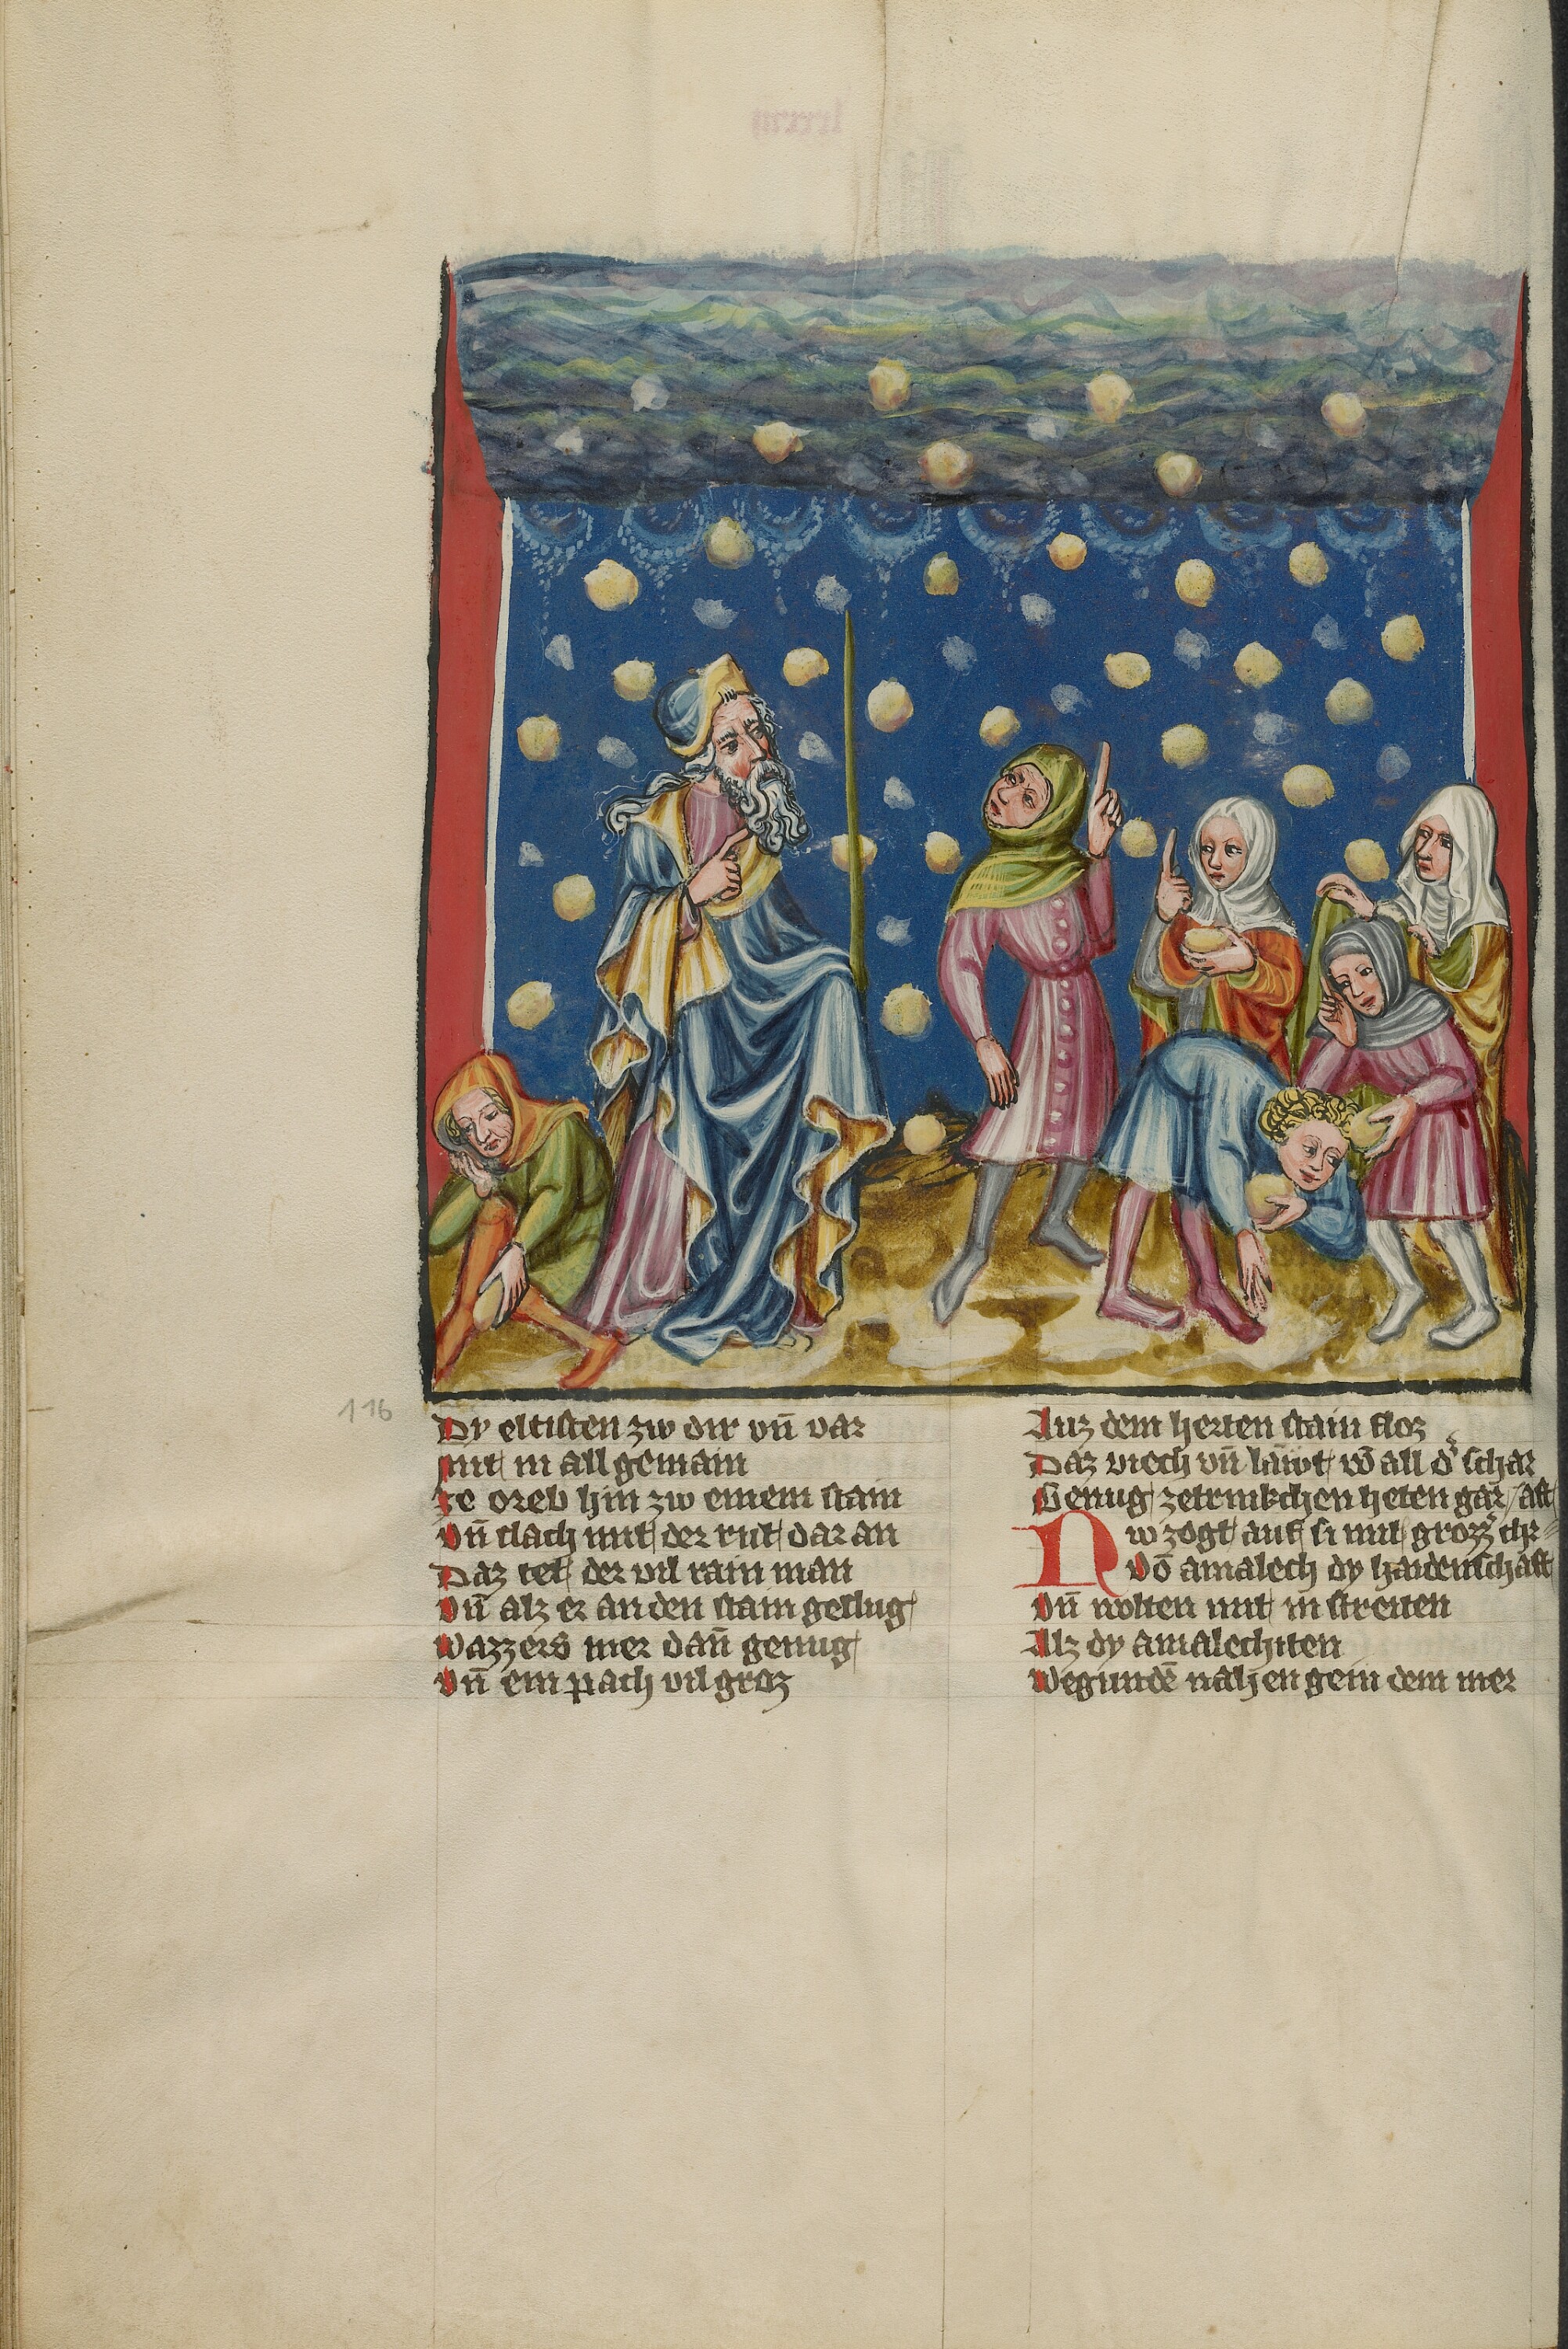 116
Dy eltisten zw dir vn̄ var
mit in all gemain
Ze oreb hin zw einem stain
vn̄ slach mit der rut dar an
Daz tet der vil rain man
vn̄ alz er an den stain geslug
wazzers mer dan̄ genug
vn̄ ein pach vil groz
Auz dem herten stain floz
Daz viech vn̄ all d' schar
Genug zetrinkchen heten gar
Nw zogt auf si mit grozz'
vō amalech dy haidenschaft
vn̄ wolten mit in streiten
Alz dy amalechiten
Wegundē nahen gein dem mer